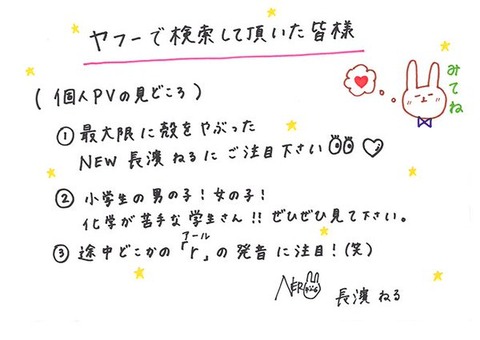 ヤフーで検索して頂いた皆様
みてね
(個人PVの見どころ)
① 最大限に殻をやぶった
NEW 長濱ねるにご注目下さい
② 小学生の男の子!女の子!
化学が苦手な学生さん!!ぜひぜひ見て下さい。
アール
③ 途中どこかの「r」の発音に注目!(笑)
NERU
長濱ねる